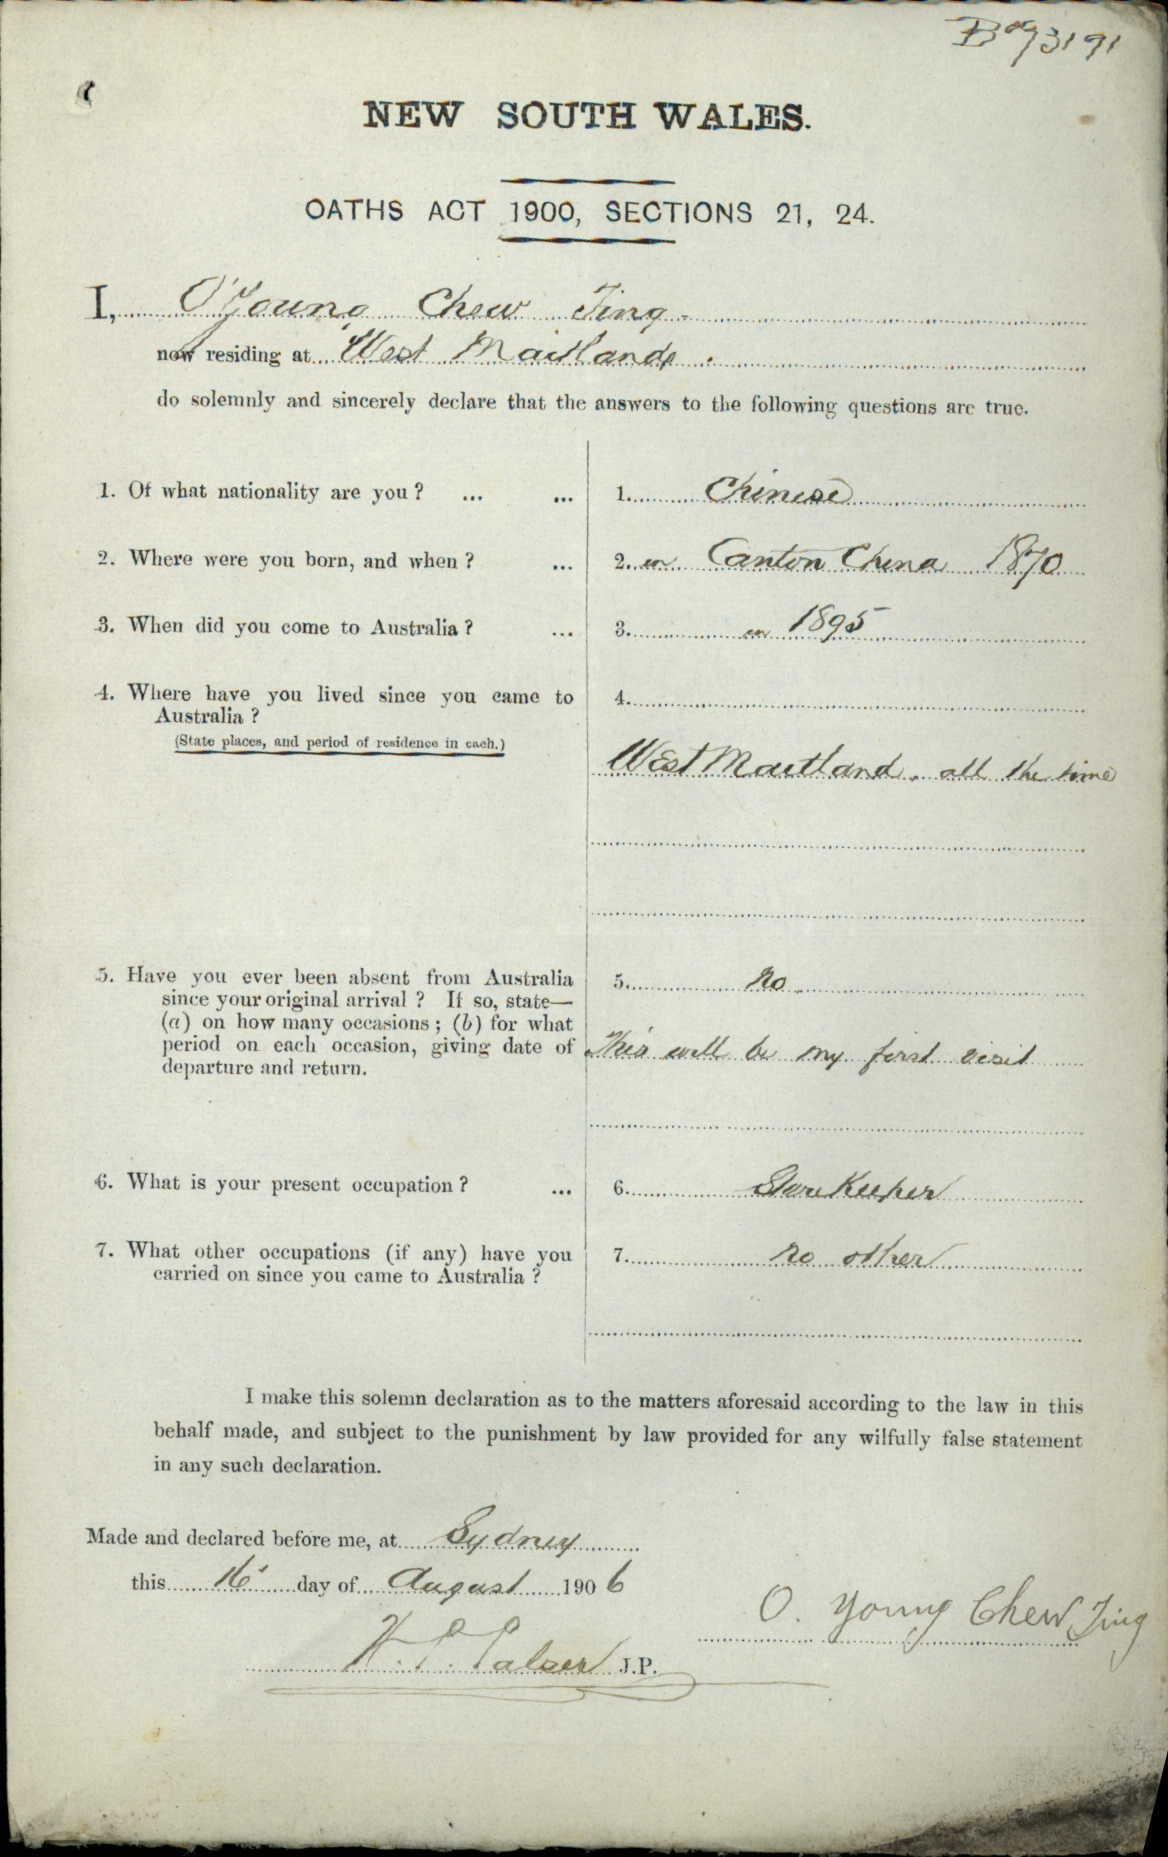 NEW SOUTH WALES.
OATHS ACT 1900, SECTIONS 21, 24.
I, O'Young Chew Ting.
now residing at West Maitland.
do solemnly and sincerely declare that the answers to the following questions are true.
1. Of what nationality are you? ... ... 1. Chinese
2. Where were you born, and when? ... 2. in Canton China 1870
3. When did you come to Australia? ... 3. in 1895
4. Where have you lived since you came to 4.
Australia?
(State places, and period of residence in each.)
West Maitland. all the time
5. Have you ever been absent from Australia 5. no.
since your original arrival? If so, state—
(a) on how many occasions; (b) for what
period on each occasion, giving date of This will be my first visit
departure and return.
6. What is your present occupation? ... 6. Store Keeper
7. What other occupations (if any) have you 7. no other
carried on since you came to Australia?
I make this solemn declaration as to the matters aforesaid according to the law in this
behalf made, and subject to the punishment by law provided for any wilfully false statement
in any such declaration.
Made and declared before me, at Sydney
this 16' day of August 1906
O. Young Chew Ting
J.P.